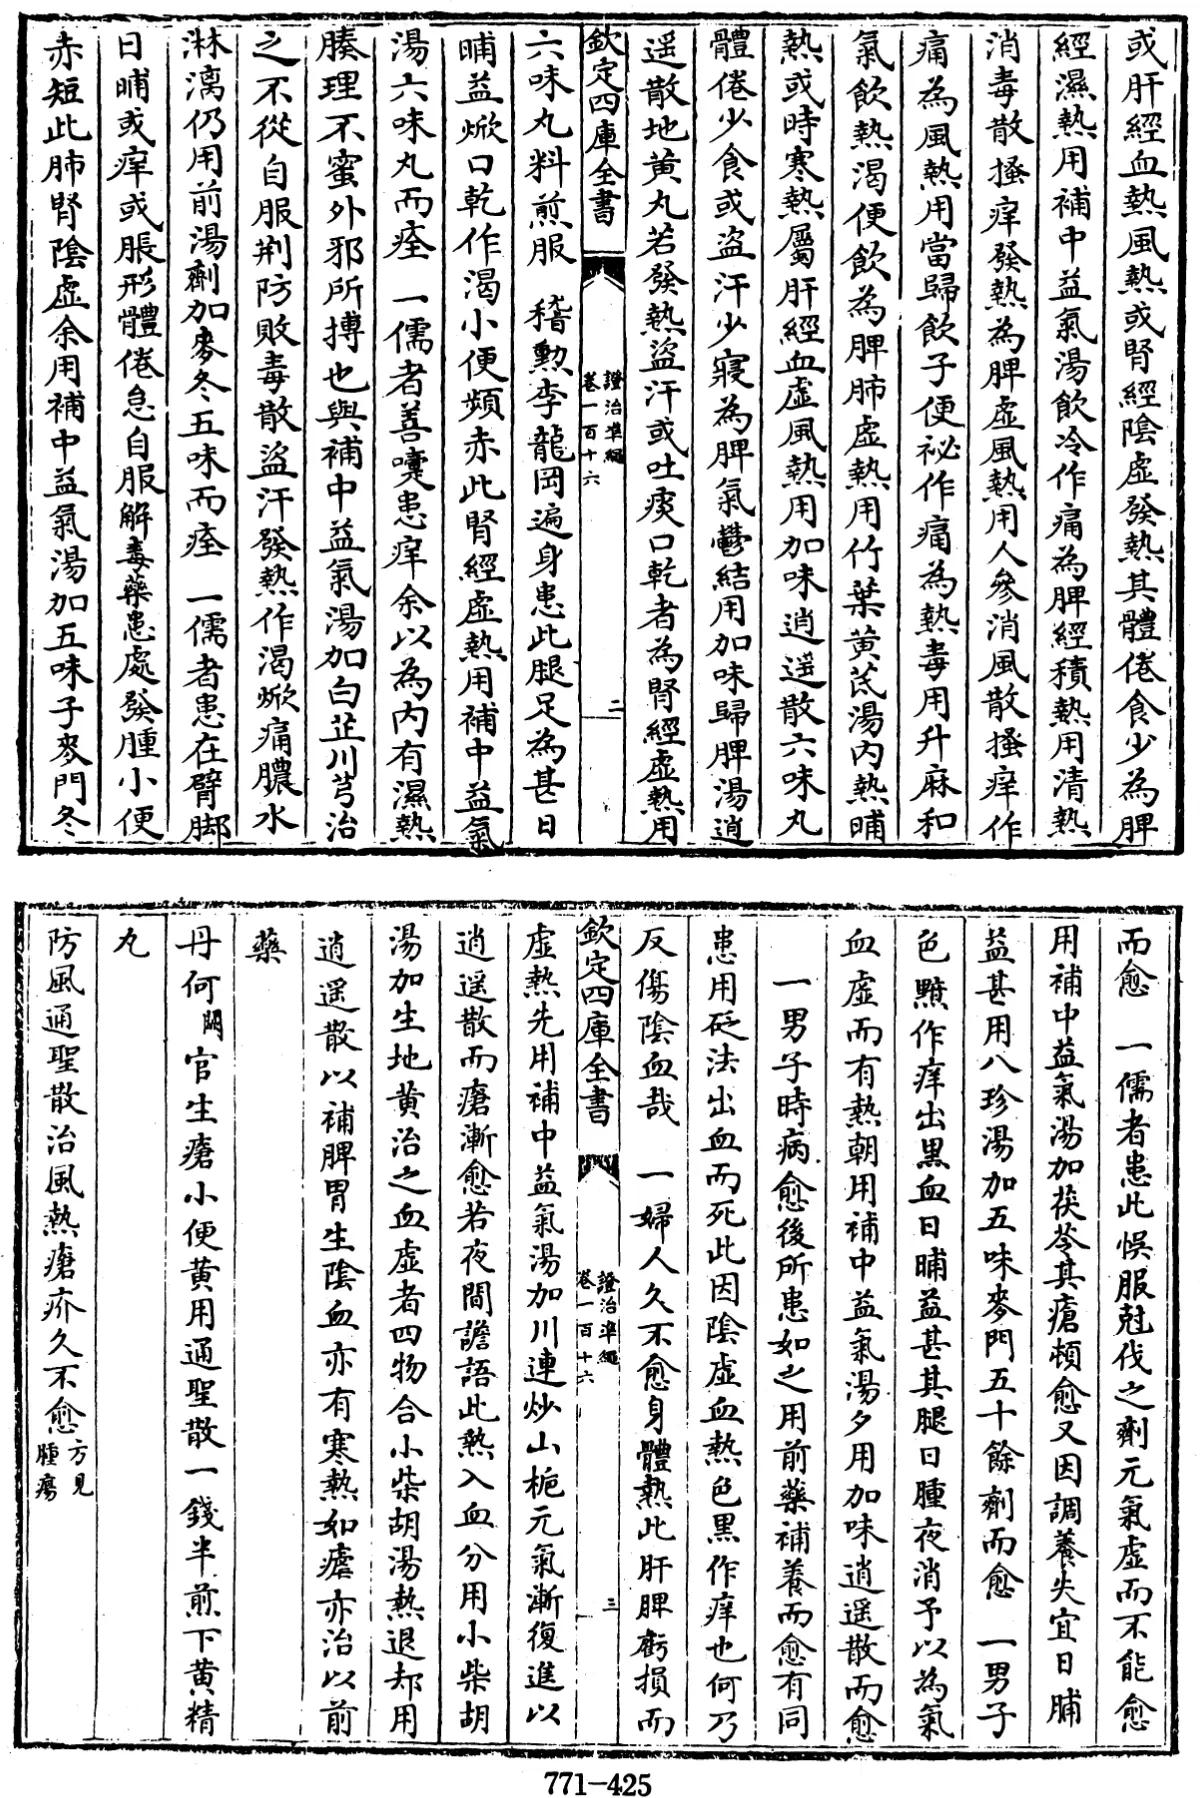 或肝經血熱風熱或腎經陰虛發熱其體倦食少為脾
經濕熱用補中益氣湯飲冷作痛為脾經積熱用清熱
消毒散搔痒發熱為脾虛風熱用人參消風散搔痒作
痛為風熱用當歸飲子便祕作痛為熱毒用升麻和
氣飲熱渴便飲為脾肺虛熱用竹葉黄茋湯内熱晡
熱或時寒熱屬肝經血虛風熱用加味逍遥散六味丸
體倦少食或盜汗少寢為脾氣鬱結用加味歸脾湯逍
遥散地黄丸若發熱盜汗或吐痰口乾者為腎經虛熱用
欽定四庫全書
證治準繩
卷一百十六
二
六味丸料煎服　稽勳李龍岡遍身患此腿足為甚日
晡益焮口乾作渴小便頻赤此腎經虛熱用補中益氣
湯六味丸而痊　一儒者善嚏患痒余以為内有濕熱
腠理不蜜外邪所搏也與補中益氣湯加白芷川芎治
之不從自服荆防敗毒散盜汗發熱作渴焮痛膿水
淋漓仍用前湯劑加麥冬五味而痊　一儒者患在臂脚
日晡或痒或脹形體倦怠自服解毒藥患處發腫小便
赤短此肺腎陰虛余用補中益氣湯加五味子麥門冬
而愈　一儒者患此悞服尅伐之劑元氣虛而不能愈
用補中益氣湯加茯苓其瘡頓愈又因調養失宜日晡
益甚用八珍湯加五味麥門五十餘劑而愈　一男子
色黯作痒出黑血日晡益甚其腿日腫夜消予以為氣
血虛而有熱朝用補中益氣湯夕用加味逍遥散而愈
一男子時病愈後所患如之用前藥補養而愈有同
患用砭法出血而死此因陰虛血熱色黑作痒也何乃
反傷陰血哉　一婦人久不愈身體熱此肝脾虧損而
欽定四庫全書
證治準繩
卷一百十六
三
虛熱先用補中益氣湯加川連炒山梔元氣漸復進以
逍遥散而瘡漸愈若夜間譫語此熱入血分用小柴胡
湯加生地黄治之血虛者四物合小柴胡湯熱退却用
逍遥散以補脾胃生陰血亦有寒熱如瘧亦治以前
藥
丹何闕官生瘡小便黄用通聖散一錢半煎下黄精
丸
防風通聖散治風熱瘡疥久不愈方見
腫瘍
771-425